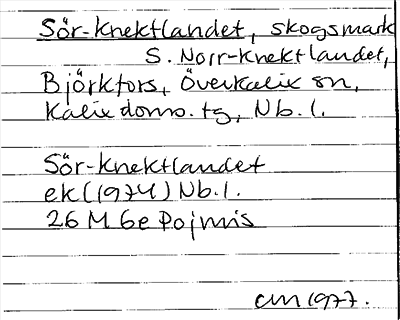 Sör-Knektlandet, skogsmark
S. Norr-Knektlandet,
Björkfors, Överkalix sn,
Kalix doms. tg, Nb. l.
Sör-Knektlandet
ek (1974) Nb. l.
26 M 6e Pojmis
am 1977.